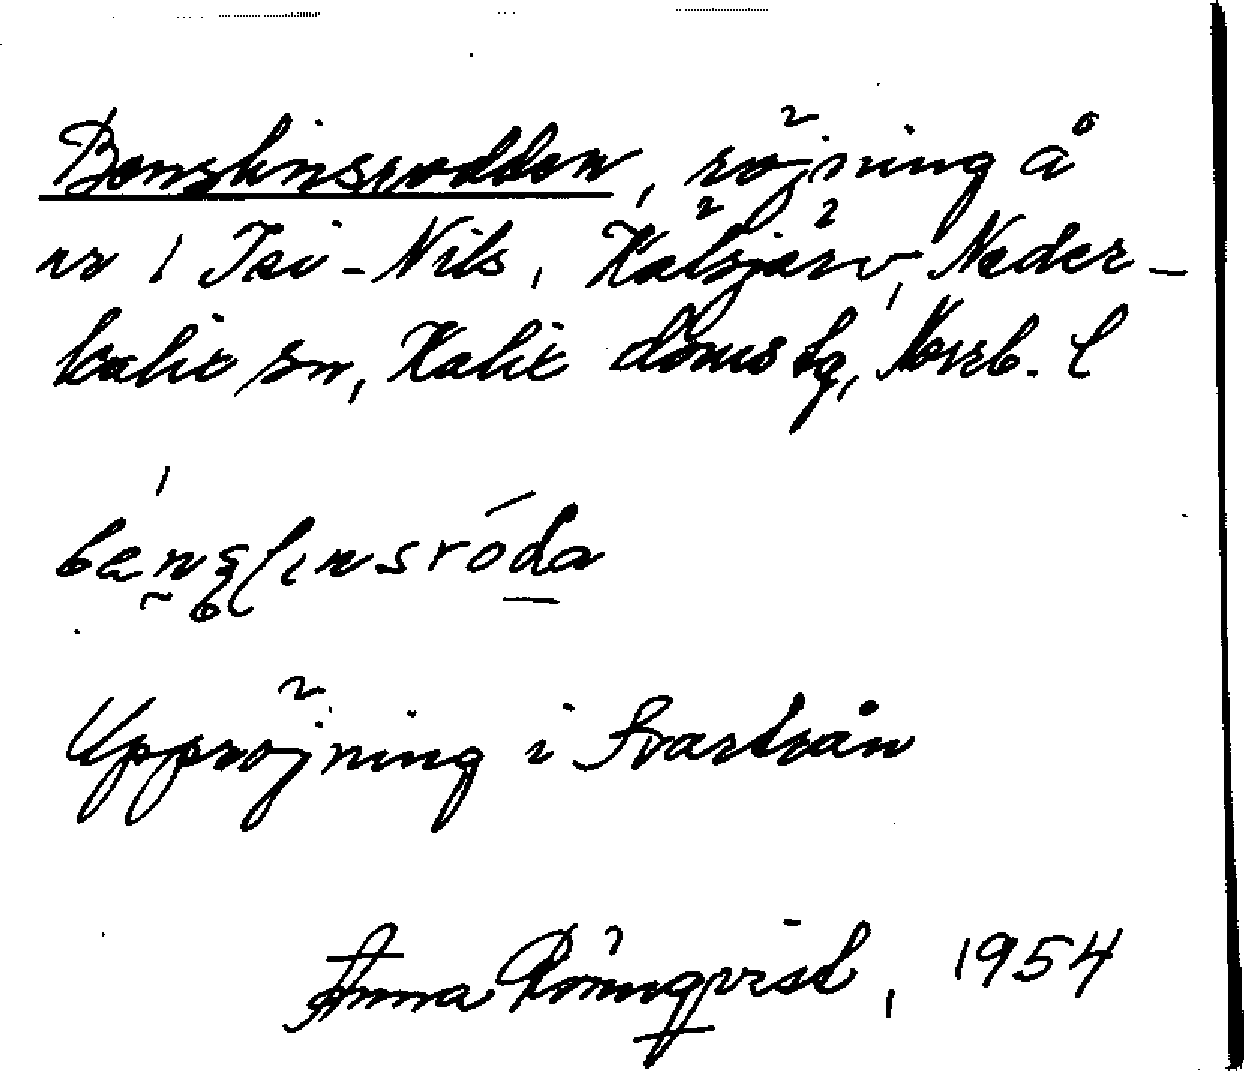 Benzlinsrödden, röjning å
nr 1 Isi-Nils, Kälsjärv, Neder-
kalix sn, Kalix doms tg, Norrb. l
Uppröjning i Svartsån
Anna Rönnqvist, 1954